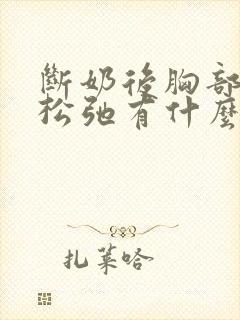 斷奶後胸部
松弛有什麼
扎菜哈